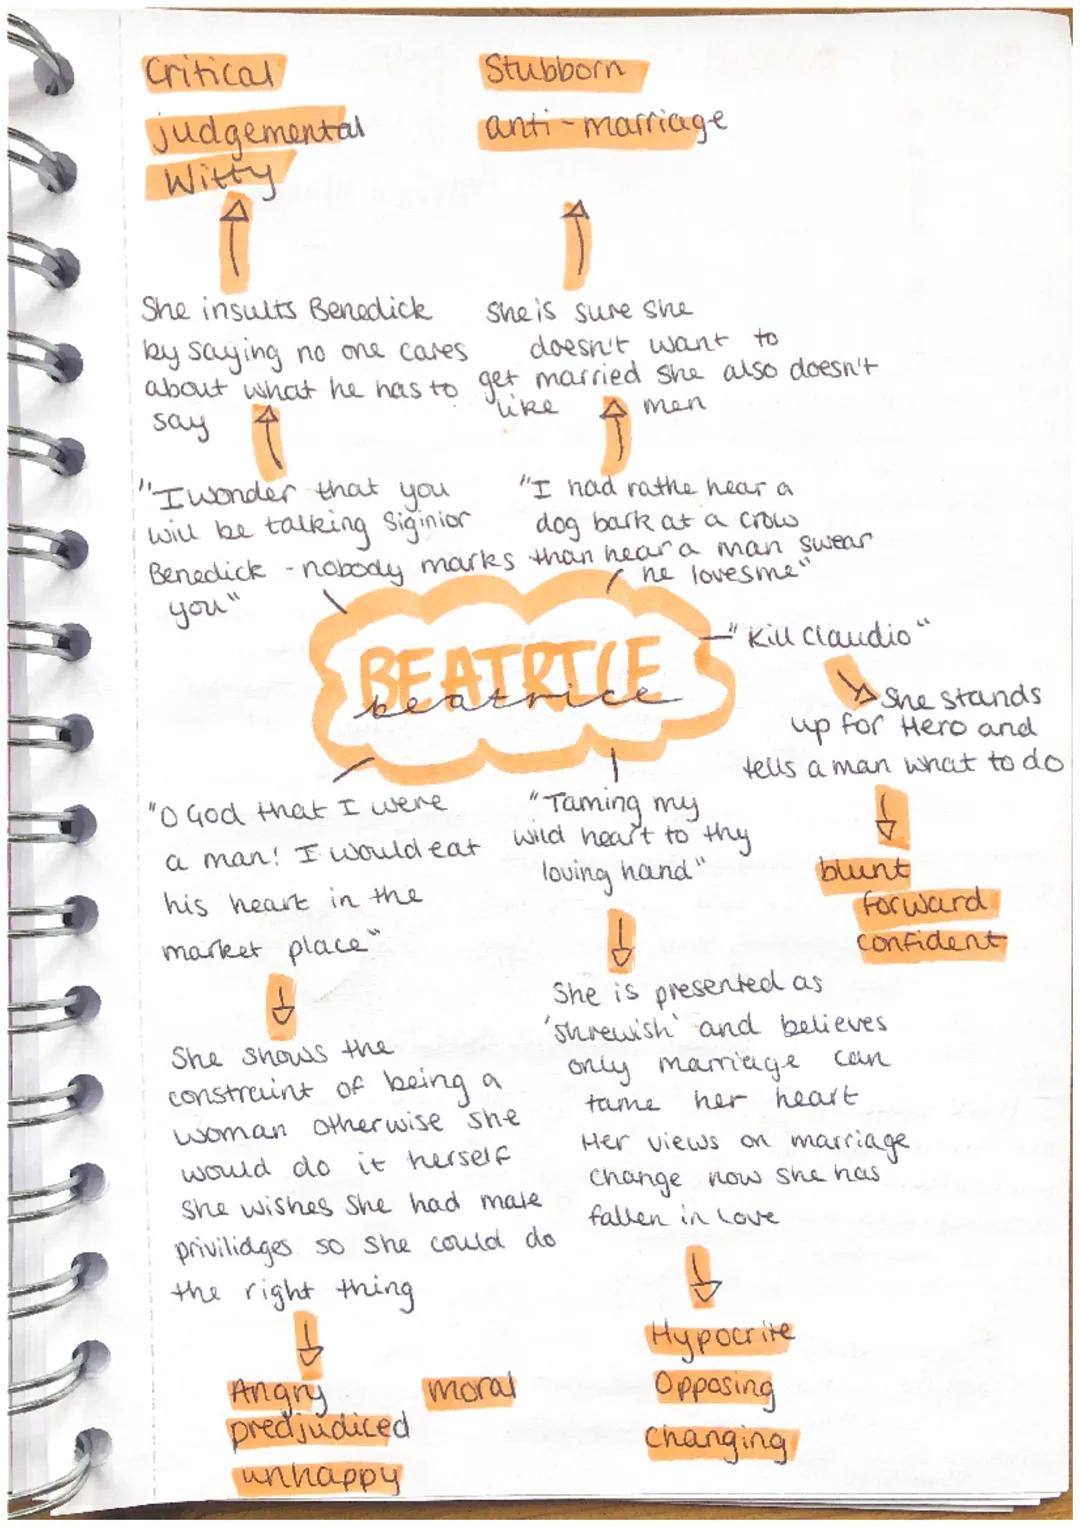 Critical
judgemental
Witty
Stubborn
anti-marriage
She insults Benedick
by saying no one cares
about what he has to
say
She is sure she
doesn't want to
get married she also doesn't
like men
"I wonder that you
will be talking Siginior
Benedick - nobody marks
you"
"I had rathe hear a
dog bark at a crow
than hear a man swear
he loves me"
BEATRICE
beatrice
"Kill Claudio"
She stands
up for Hero and
tells a man what to do
blunt
forward
confident
"O God that I were
a man! I would eat
his heart in the
market place"
She shows the
constraint of being a
woman otherwise she
would do it herself
she wishes she had male
privilidges so she could do
the right thing
Angry
predjudiced
unhappy
moral
"Taming my
wild heart to thy
loving hand"
She is presented as
'shrewish' and believes
only marriage can
tame her heart
Her views on marriage
change now she has
fallen in love
Hypocrite
Opposing
changing